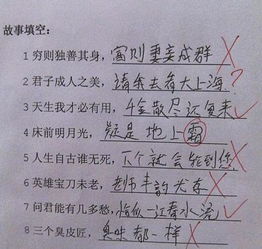 故事填空:
1 穷则独善其身, 富则妻妾成群
2 君子成人之美, 请余去看大上海?
3 天生我才必有用, 千金散尽还复来
4 床前明月光, 疑是地上霜
5 人生自古谁无死, 下个就会轮到您
6 英雄宝刀未老, 老师丰韵犹存
7 问君能有几多愁, 恰似一江春水流
8 三个臭皮匠, 臭味都一样